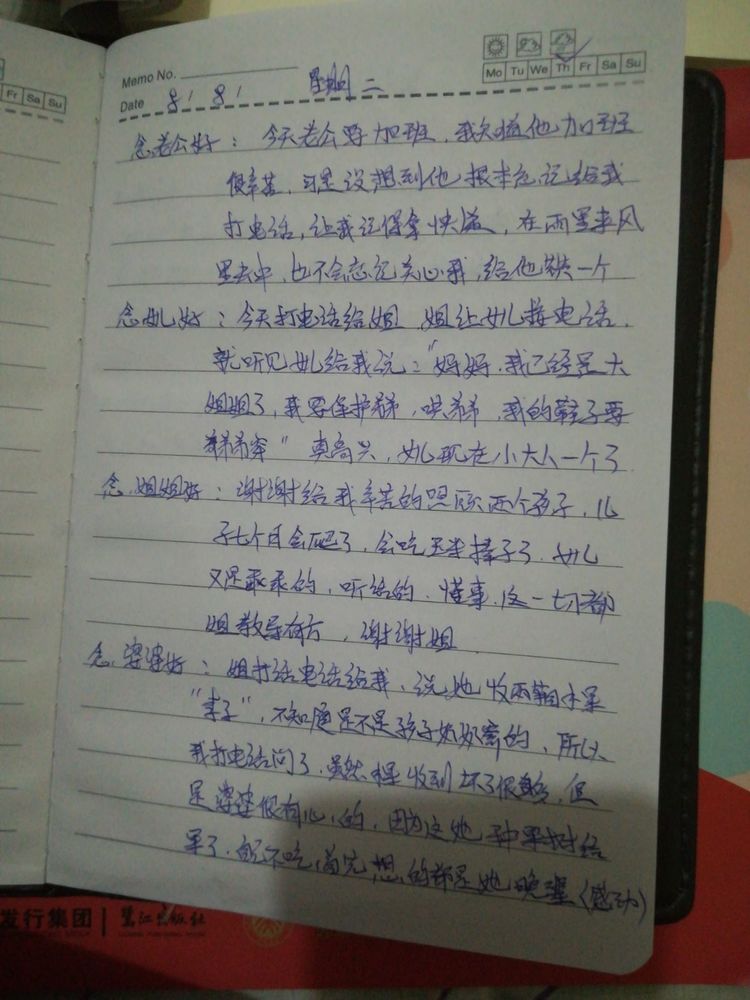 Fr Sa Su
Memo No.
Mo Tu We Th Fr Sa Su
Date 8/ 8/ 星期二
念老公好：今天老公要加班，我知道他加班
很辛苦，可是没想到他根本忘记给我
打电话，让我记得拿快递，在雨里来风
里去中，也不会忘记关心我，给他赞一个
念女儿好：今天打电话给姐，姐让女儿接电话，
就听见女儿给我说："妈妈，我已经是大
姐姐了，我要保护弟弟，哄弟弟，我的鞋子要
弟弟穿"真高兴，女儿现在小大人一个了
念姐姐好：谢谢给我辛苦的照顾两个孩子，儿
子七个月会爬了，会吃玉米棒子了，女儿
又是乖乖的，听话的，懂事，这一切都
姐教导有方，谢谢姐
念婆婆好：姐打话电话给我，说她收两箱水果
"李子"，不知道是不是孩子奶奶寄的，所以
我打电话问了，虽然收到坏了很多，但
是婆婆很有心的，因为这她种果树结
果了，舍不吃，首先想的都是她晚辈（感动）
发行集团 鹭江出版社